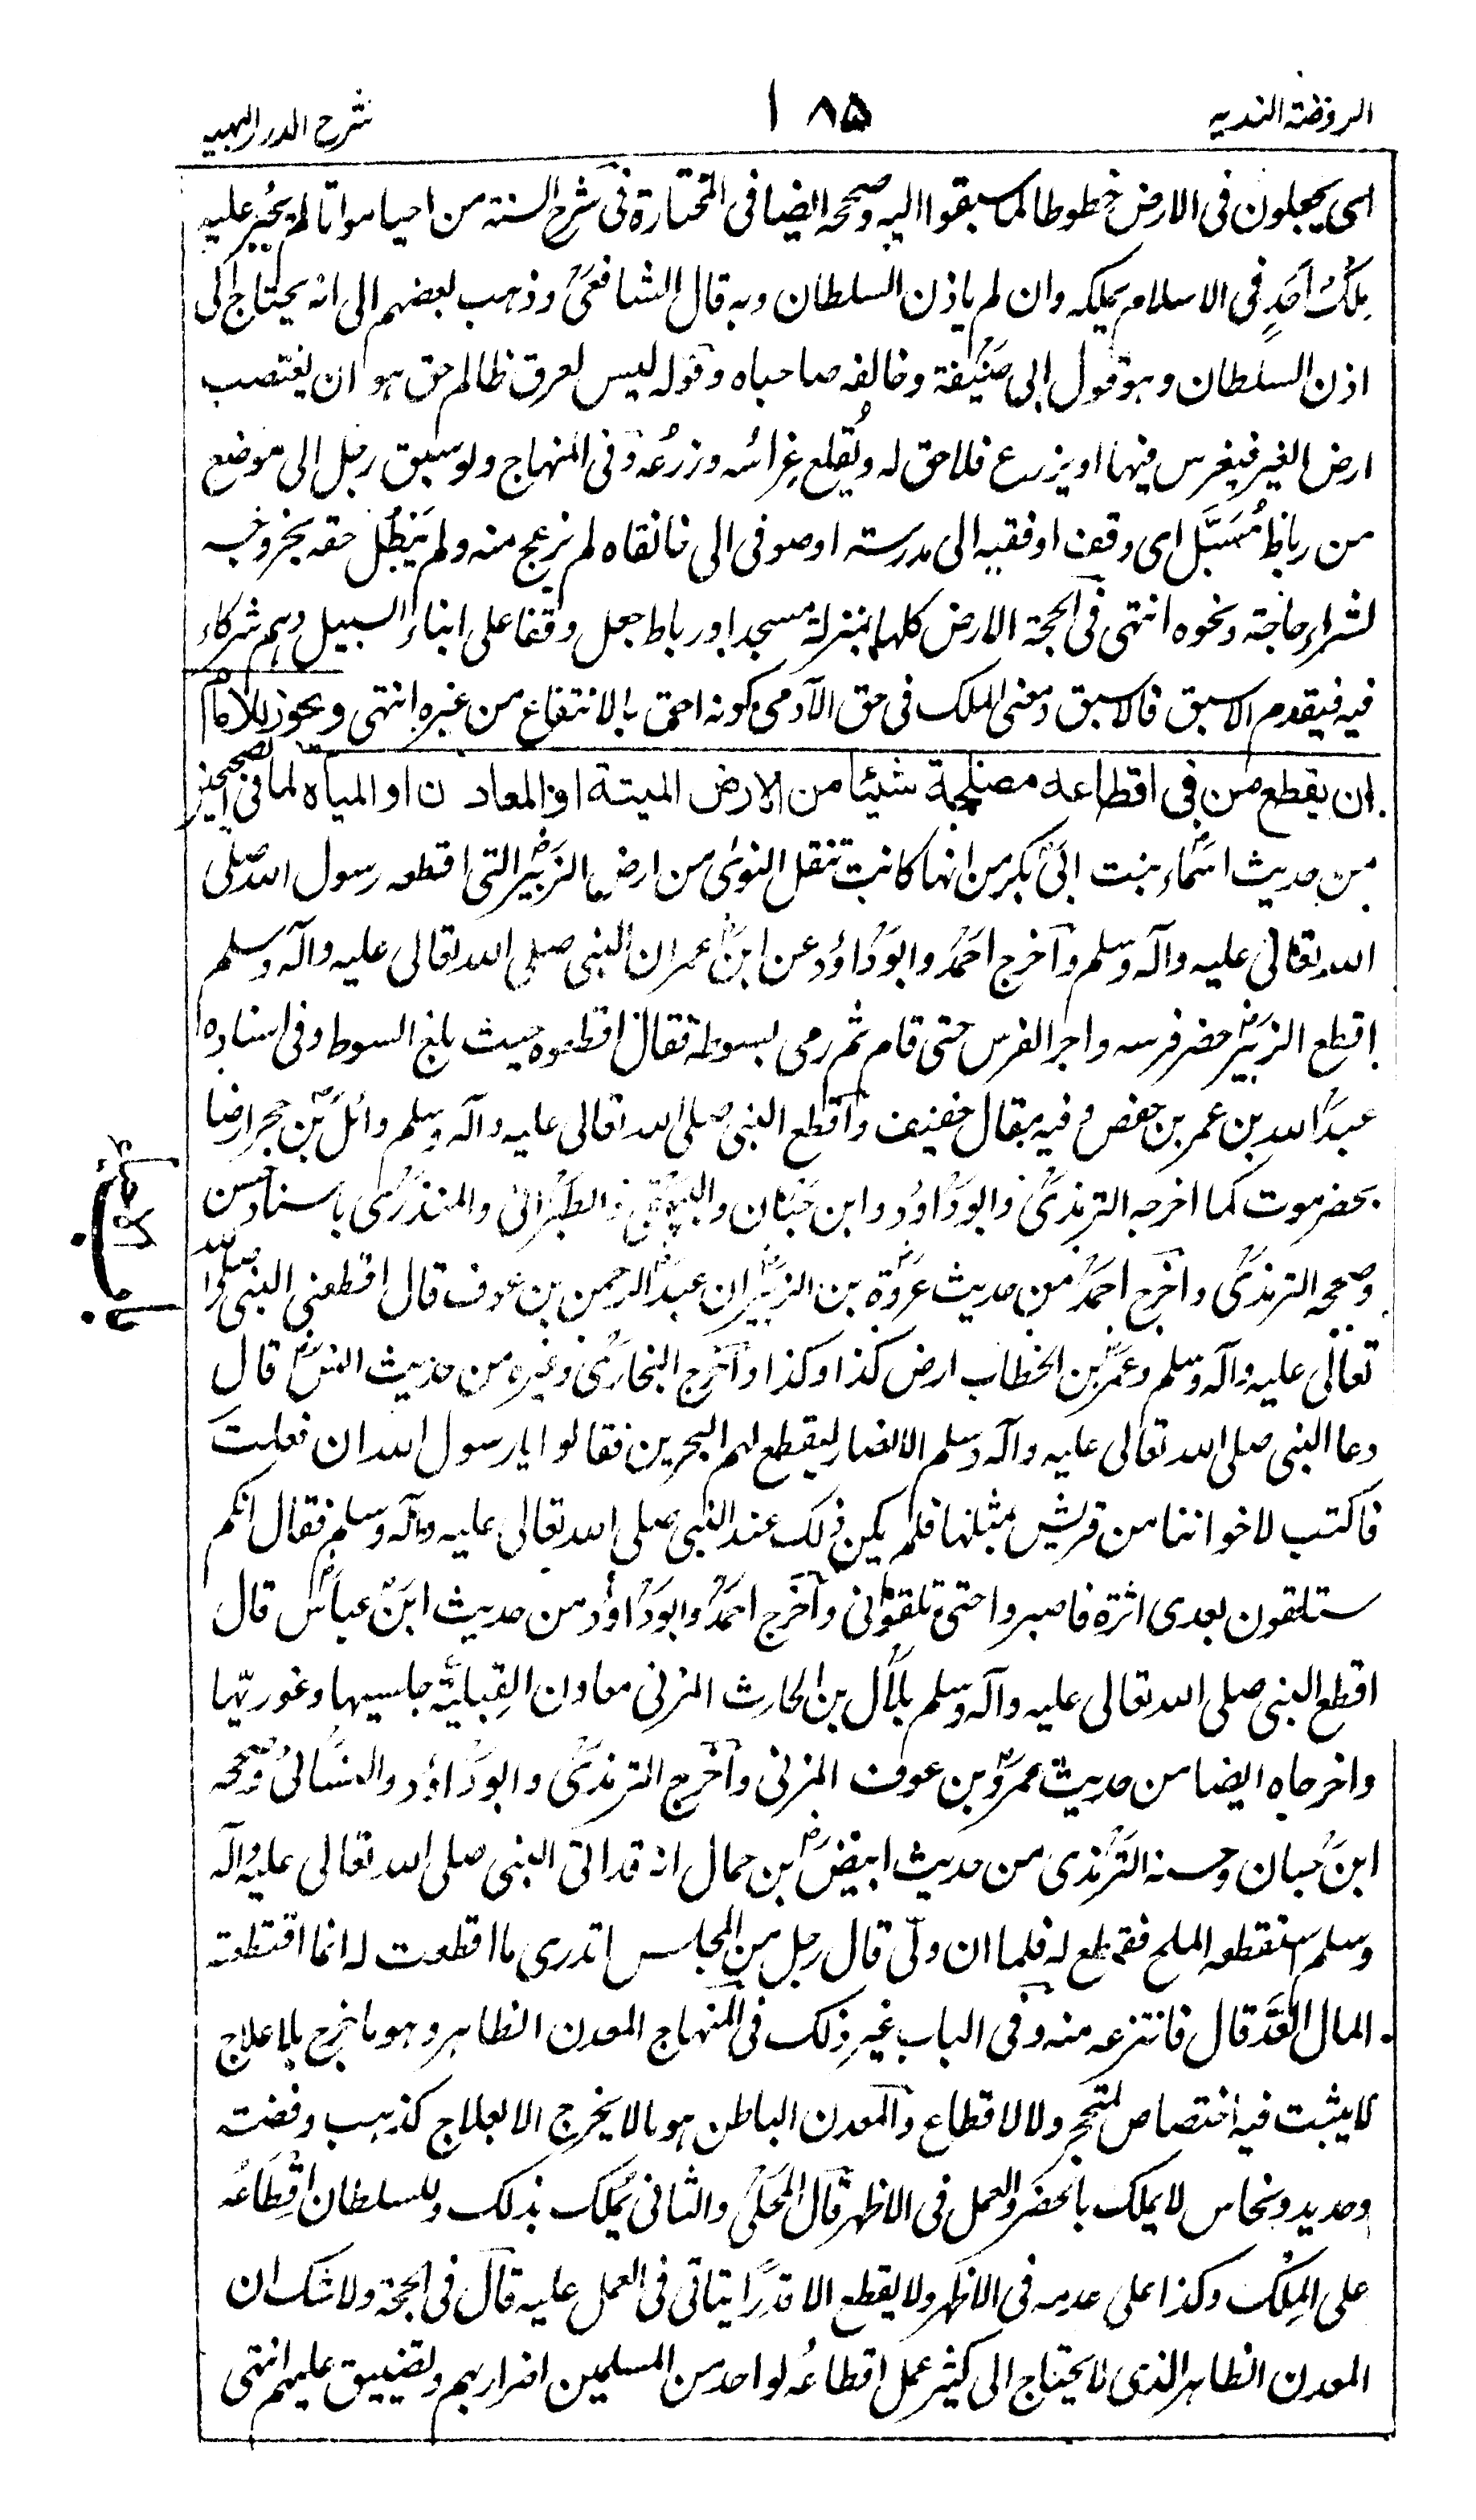 الروضة الندية
١٨٥
شرح الدرر البهية
اى يجعلون فى الارض خطوطا لما سبقوا اليه وصححه الضيا فى المختارة فى شرح السنة من احيا مواتا لم يجر عليه
مِلْكُ اَحَدٍ فى الاسلام يملكه وان لم ياذن السلطان وبه قال الشافعى وذهب بعضهم الى انه يحتاج الى
اذن السلطان وهو قول ابى حنيفة وخالفه صاحباه وقوله ليس لعرق ظالم حق هو ان يغتصب
ارض الغير فيغرس فيها او يزرع فلا حق له ويُقلع غِراسُه وزرعُه وفى المنهاج ولو سبق رجل الى موضع
من رباط مُسَبَّل اى وقف او فقيه الى مدرسته او صوفى الى خانقاه لم يزعج منه ولم يَبْطُل حقه بخروجه
لشراء حاجة ونحوه انتهى فى الحجة الارض كلها بمنزلة مسجد او رباط جعل وقفا على ابناء السبيل وهم شركاء
فيه فيقدم الاسبق فالاسبق ومعنى الملك فى حق الآدمى كونه احق بالانتفاع من غيره انتهى ويجوز للامام
ان يقطع من فى اقطاعه مصلحة شيئا من الارض الميتة او المعادن او المياه لما فى الصحيحين
من حديث اسماء بنت ابى بكر من انها كانت تنقل النوى من ارض الزبير التى اقطعه رسول الله صلى
الله تعالى عليه وآله وسلم وأخرج احمد وابو داؤد عن ابن عمر ان النبى صلى الله تعالى عليه وآله وسلم
اقطع الزبير حضر فرسه واجر الفرس حتى قام ثم رمى بسوطه فقال اقطعوه حيث بلغ السوط وفى اسناده
عبد الله بن عمر بن حفص وفيه مقال خفيف وأقطع النبى صلى الله تعالى عليه وآله وسلم وائل بن حجر ارضا
بحضرموت كما اخرجه الترمذى وابو داؤد وابن حبان والبيهقى والطبرانى والمنذرى باسناد حسن
وصححه الترمذى وأخرج احمد من حديث عروة بن الزبير ان عبد الرحمن بن عوف قال اقطعنى النبى صلى الله
تعالى عليه وآله وسلم وعمر بن الخطاب ارض كذا وكذا وأخرج البخارى وغيره من حديث انس قال
دعا النبى صلى الله تعالى عليه وآله وسلم الانصار ليقطع لهم البحرين فقالوا يا رسول الله ان فعلت
فاكتب لاخواننا من قريش بمثلها فلم يكن ذلك عند النبى صلى الله تعالى عليه وآله وسلم فقال انكم
ستلقون بعدى اثرة فاصبروا حتى تلقونى وأخرج احمد وابو داؤد من حديث ابن عباس قال
اقطع النبى صلى الله تعالى عليه وآله وسلم بلال بن الحارث المزنى معادن القِبليَّة جلسيها وغوريّها
واخرجاه ايضا من حديث عمرو بن عوف المزنى وأخرج الترمذى وابو داؤد والنسائى وصححه
ابن حبان وحسنه الترمذى من حديث ابيض بن حمال انه قد اتى النبى صلى الله تعالى عليه وآله
وسلم استقطعه الملح فقطع له فلما ان ولّى قال رجل من المجلس اتدرى ما اقطعت له انما اقتطعته
المال العَدّ قال فانتزعه منه وفى الباب غير ذلك فى المنهاج المعدن الظاهر وهو ما خرج بلا علاج
لا يثبت فيه اختصاص لمتحجر ولا لاقطاع والمعدن الباطن هو ما لا يخرج الا بعلاج كذهب وفضة
وحديد ونحاس لا يملك بالحفر والعمل فى الاظهر قال المحلى والثانى يُملك بذلك وللسلطان اقطاعُه
على المِلْك وكذا على عدمه فى الاظهر ولا يقطع الا قدرًا يتاتى فى العمل عليه قال فى الحجة ولا شك ان
المعدن الظاهر الذى لا يحتاج الى كثير عمل اقطاعُه لواحد من المسلمين اضرار بهم وتضييق عليهم انتهى